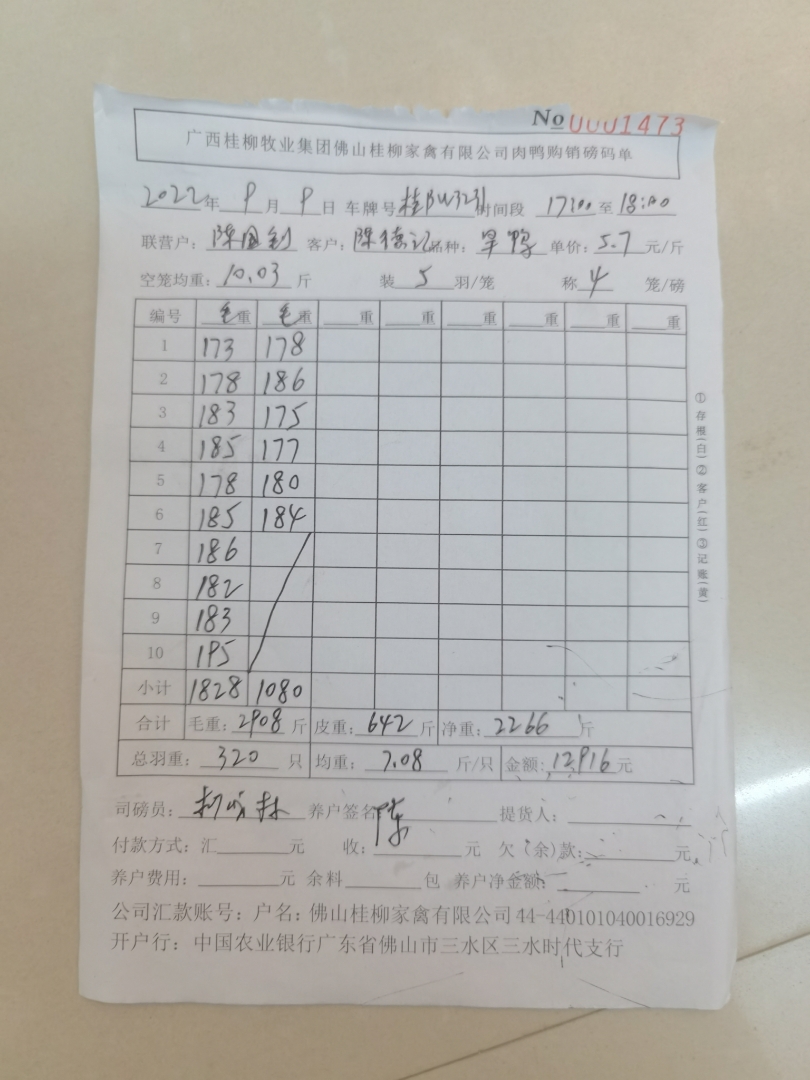 No 0001473
广西桂柳牧业集团佛山桂柳家禽有限公司肉鸭购销磅码单
2022年 9月 9日 车牌号 时间段 17:00至18:00
联营户: 客户: 陈德记 品种: 旱鸭 单价: 5.7元/斤
空笼均重: 10.03斤 装5羽/笼 称4笼/磅
编号 毛重 毛重 ___重 ___重 ___重 ___重 ___重 ___重
1 173 178
2 178 186
3 183 175
4 185 177
5 178 180
6 185 184
7 186
8 182
9 183
10 195
小计 1828 1080
合计 毛重: 2908斤 皮重: 642斤 净重: 2266斤
总羽重: 320只 均重: 7.08斤/只 金额: 12916元
司磅员: 养户签名 陈 提货人:
付款方式: 汇____元 收:____元 欠(余)款:____元
养户费用:____元 余料____包 养户净金额:____元
公司汇款账号: 户名: 佛山桂柳家禽有限公司 44-440101040016929
开户行: 中国农业银行广东省佛山市三水区三水时代支行
①存根(白)②客户(红)③记账(黄)